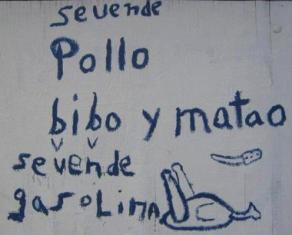 se vende
Pollo
bibo y matao
v v
se vende
gasoLina